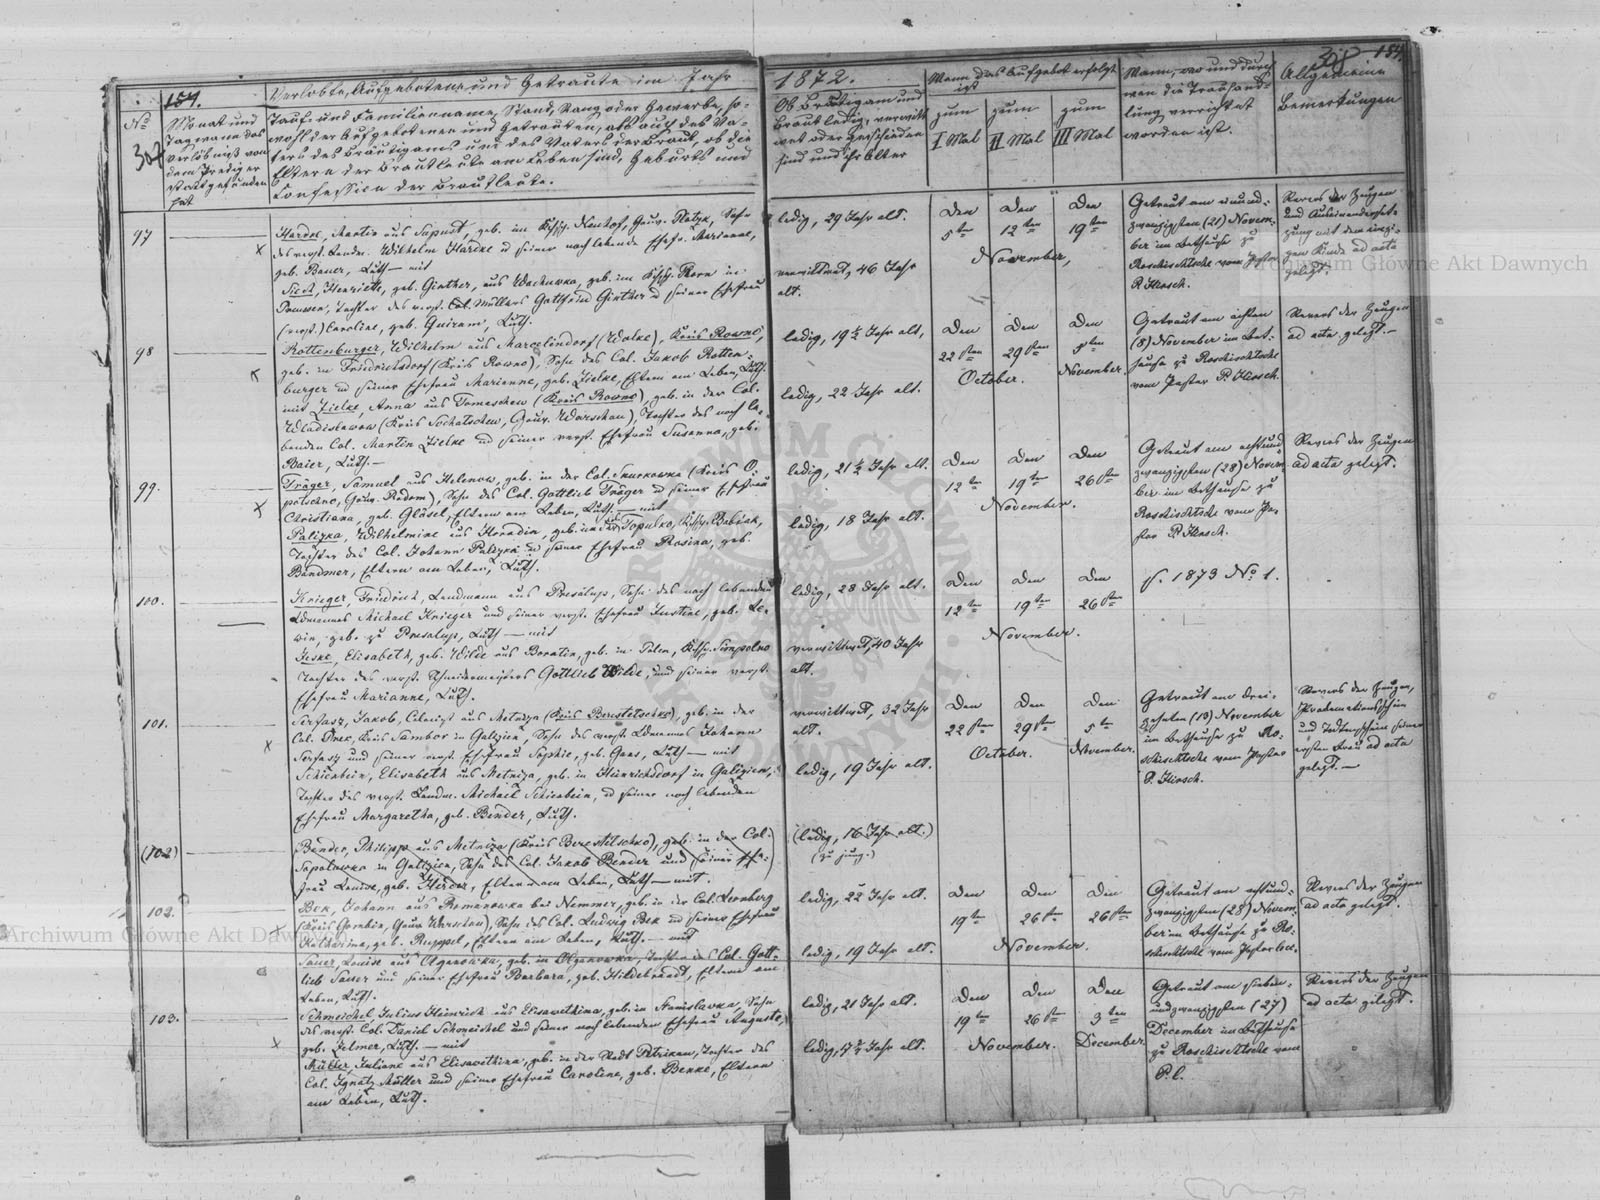 154.
Verlobte, Aufgebotene und Getraute im Jahr
1872.
No
307
Monat und
Tag wann das
Verlöbniß von
dem Prediger
stattgefunden
hat
Tauf- und Familienname, Stand, Rang oder Gewerbe, so-
wohl der Aufgebotenen und Getrauten, als auch des Va-
ters des Bräutigams und des Vaters der Braut, ob die
Eltern der Brautleute am Leben sind, Geburts und
Confession der Brautleute.
Ob Bräutigam und
Braut ledig, verwitt-
wet oder geschieden
sind und ihr Alter
Wann das Aufgebot erfolgt
ist
zum I Mal
zum II Mal
zum III Mal
Wann, wo und durch
wen die Trauhand-
lung verrichtet
worden ist.
Allgemeine
Bemerkungen
154.
97
Hardke, Martin aus August, geb. im Neuhof, Gouv. Plotzk, Sohn
des verst. Landm. Wilhelm Hardke u seiner noch lebende Ehefr. Marianne,
geb. Bauer, Luth. — mit
Henriette, geb. Ginther, aus geb. im Kchsp. in
Preussen, Tochter des verst. Col. Müllers Gottfried Ginther u seiner Ehefrau
(verst.) Caroline, geb. Luth.
ledig, 29 Jahr alt.
verwittwet, 46 Jahr
alt.
Den 5ten
Den 12ten
Den 19ten
November,
Getraut am einund-
zwanzigsten (21) Novem-
ber im Bethause zu
Roschischtsche vom Pastor
P. Kersch.
Revers der Zeugen
und Auseinanderset-
zung mit dem einzi-
gen Kinde ad acta
gelegt.
98
Rottenburger, Wilhelm aus Marcelindorf (Wolke), Kreis Rowno,
geb. in Friedrichsdorf (Kreis Rowno), Sohn des Col. Jakob Rotten-
burger u seiner Ehefrau Marianne, geb. Zielke, Eltern am Leben, Luth.
mit Zielke, Anna aus Tomaschew (Kreis Rowno), geb. in der Col.
Wladislawow (Kreis Sochatschew, Gouv. Warschau), Tochter des noch le-
benden Col. Martin Zielke u seiner verst. Ehefrau Susanna, geb.
Baier, Luth. —
ledig, 19 ½ Jahr alt,
ledig, 22 Jahr alt.
Den 22sten
Den 29sten
October.
Den
November.
Getraut am achten
(8) November im Bet-
hause zu Roschischtsche
vom Pastor P. Kersch.
Revers der Zeugen
ad acta gelegt. —
99.
Träger, Samuel aus Helenow, geb. in der Col. (Kreis O-
potschno, Gouv. Radom), Sohn des Col. Gottlieb Träger u seiner Ehefrau
Christiana, geb. Gläsel, Eltern am Leben, Luth. — mit
Palizka, Wilhelmine aus geb. in der Topulko, Kchsp. Babiak,
Tochter des Col. Johann Palizka u seiner Ehefrau Rosina, geb.
Bandmer, Eltern am Leben, Luth.
ledig, 21 ½ Jahr alt.
ledig, 18 Jahr alt.
Den 12ten
Den 19ten
Den 26sten
November.
Getraut am achtund
zwanzigsten (28) Novem-
ber im Bethause zu
Roschischtsche vom Pa-
stor P. Kersch.
Revers der Zeugen
ad acta gelegt.
100.
Krieger, Friedrich, Landmann aus Presalup, Sohn des noch lebenden
Michael Krieger und seiner verst. Ehefrau Justine, geb. Le-
win, geb. zu Presalup, Luth. — mit
Jeske, Elisabeth, geb. Wilde aus Boratin, geb. in Polen, Kchsp. Sompolno
Tochter des verst. Schneidermeisters Gottlieb Wilde, und seiner verst.
Ehefrau Marianne, Luth.
ledig, 28 Jahr alt.
verwittwet, 40 Jahr
alt.
Den 12ten
Den 19ten
Den 26sten
November.
s. 1873 No 1.
101.
Serfasz, Jakob, Colonist aus Metniza (Kreis Berestetschko), geb. in der
Col. Kreis Sambor in Galizien, Sohn des verst. Johann
Serfasz und seiner verst. Ehefrau Sophie, geb. Luth. — mit
Schienbein, Elisabeth aus Metniza, geb. in Heinrichsdorf in Galizien,
Tochter des verst. Landm. Michael Schienbein, u seiner noch lebenden
Ehefrau Margaretha, geb. Bender, Luth.
verwittwet, 32 Jahr
alt.
ledig, 19 Jahr alt.
Den 22sten
Den 29sten
October.
Den 5ten
November.
Getraut am drei-
zehnten (13) November
im Bethause zu Ro-
schischtsche vom Pastor
P. Kersch.
Revers der Zeugen,
Proclamationsschein
und Todtenschein seiner
ersten Frau ad acta
gelegt. —
(102)
Bender, Philipp aus Metniza (Kreis Berestetschko), geb. in der Col.
in Galizien, Sohn des Col. Jakob Bender und seiner Ehe-
frau Louise, geb. Eltern am Leben, Luth. — mit.
(ledig, 16 Jahr alt.)
(zu jung.)
102.
Bek, Johann aus Romanowka bei Nemmer, geb. in der Col. Leonberg
(Kreis Gombin, Gouv. Warschau), Sohn des Col. Ludwig Bek u seiner Ehefrau
Katharina, geb. Ruppel, Eltern am Leben, Luth. — mit
Sauer, Louise aus Olganowka, geb. in Olganowka, Tochter des Col. Gott-
lieb Sauer und seiner Ehefrau Barbara, geb. Hildebrandt, Eltern am
Leben, Luth.
ledig, 22 Jahr alt.
ledig, 19 Jahr alt.
Den 19ten
Den 26sten
Den 26sten
November.
Getraut am achtund-
zwanzigsten (28) Novem-
ber im Bethause zu Ro-
schischtsche vom Pastor loci.
Revers der Zeugen
ad acta gelegt.
103.
Schmeichel, Julius Heinrich aus Elisawethina, geb. in Stanislawka, Sohn
des verst. Col. Daniel Schmeichel und seiner noch lebenden Ehefrau Auguste,
geb. Zelmer, Luth. — mit
Müller, Juliane aus Elisawethina, geb. in der Stadt Petrikau, Tochter des
Col. Ignatz Müller und seiner Ehefrau Caroline, geb. Benke, Eltern
am Leben, Luth.
ledig, 21 Jahr alt.
ledig, 17 ½ Jahr alt.
Den 19ten
Den 26sten
November.
Den 3ten
December.
Getraut am sieben-
undzwanzigsten (27)
December im Bethause
zu Roschischtsche vom
P. l.
Revers der Zeugen
ad acta gelegt.
Archiwum Główne Akt Dawnych
Archiwum Główne Akt Dawnych
ARCHIWUM GŁÓWNE AKT DAWNYCH